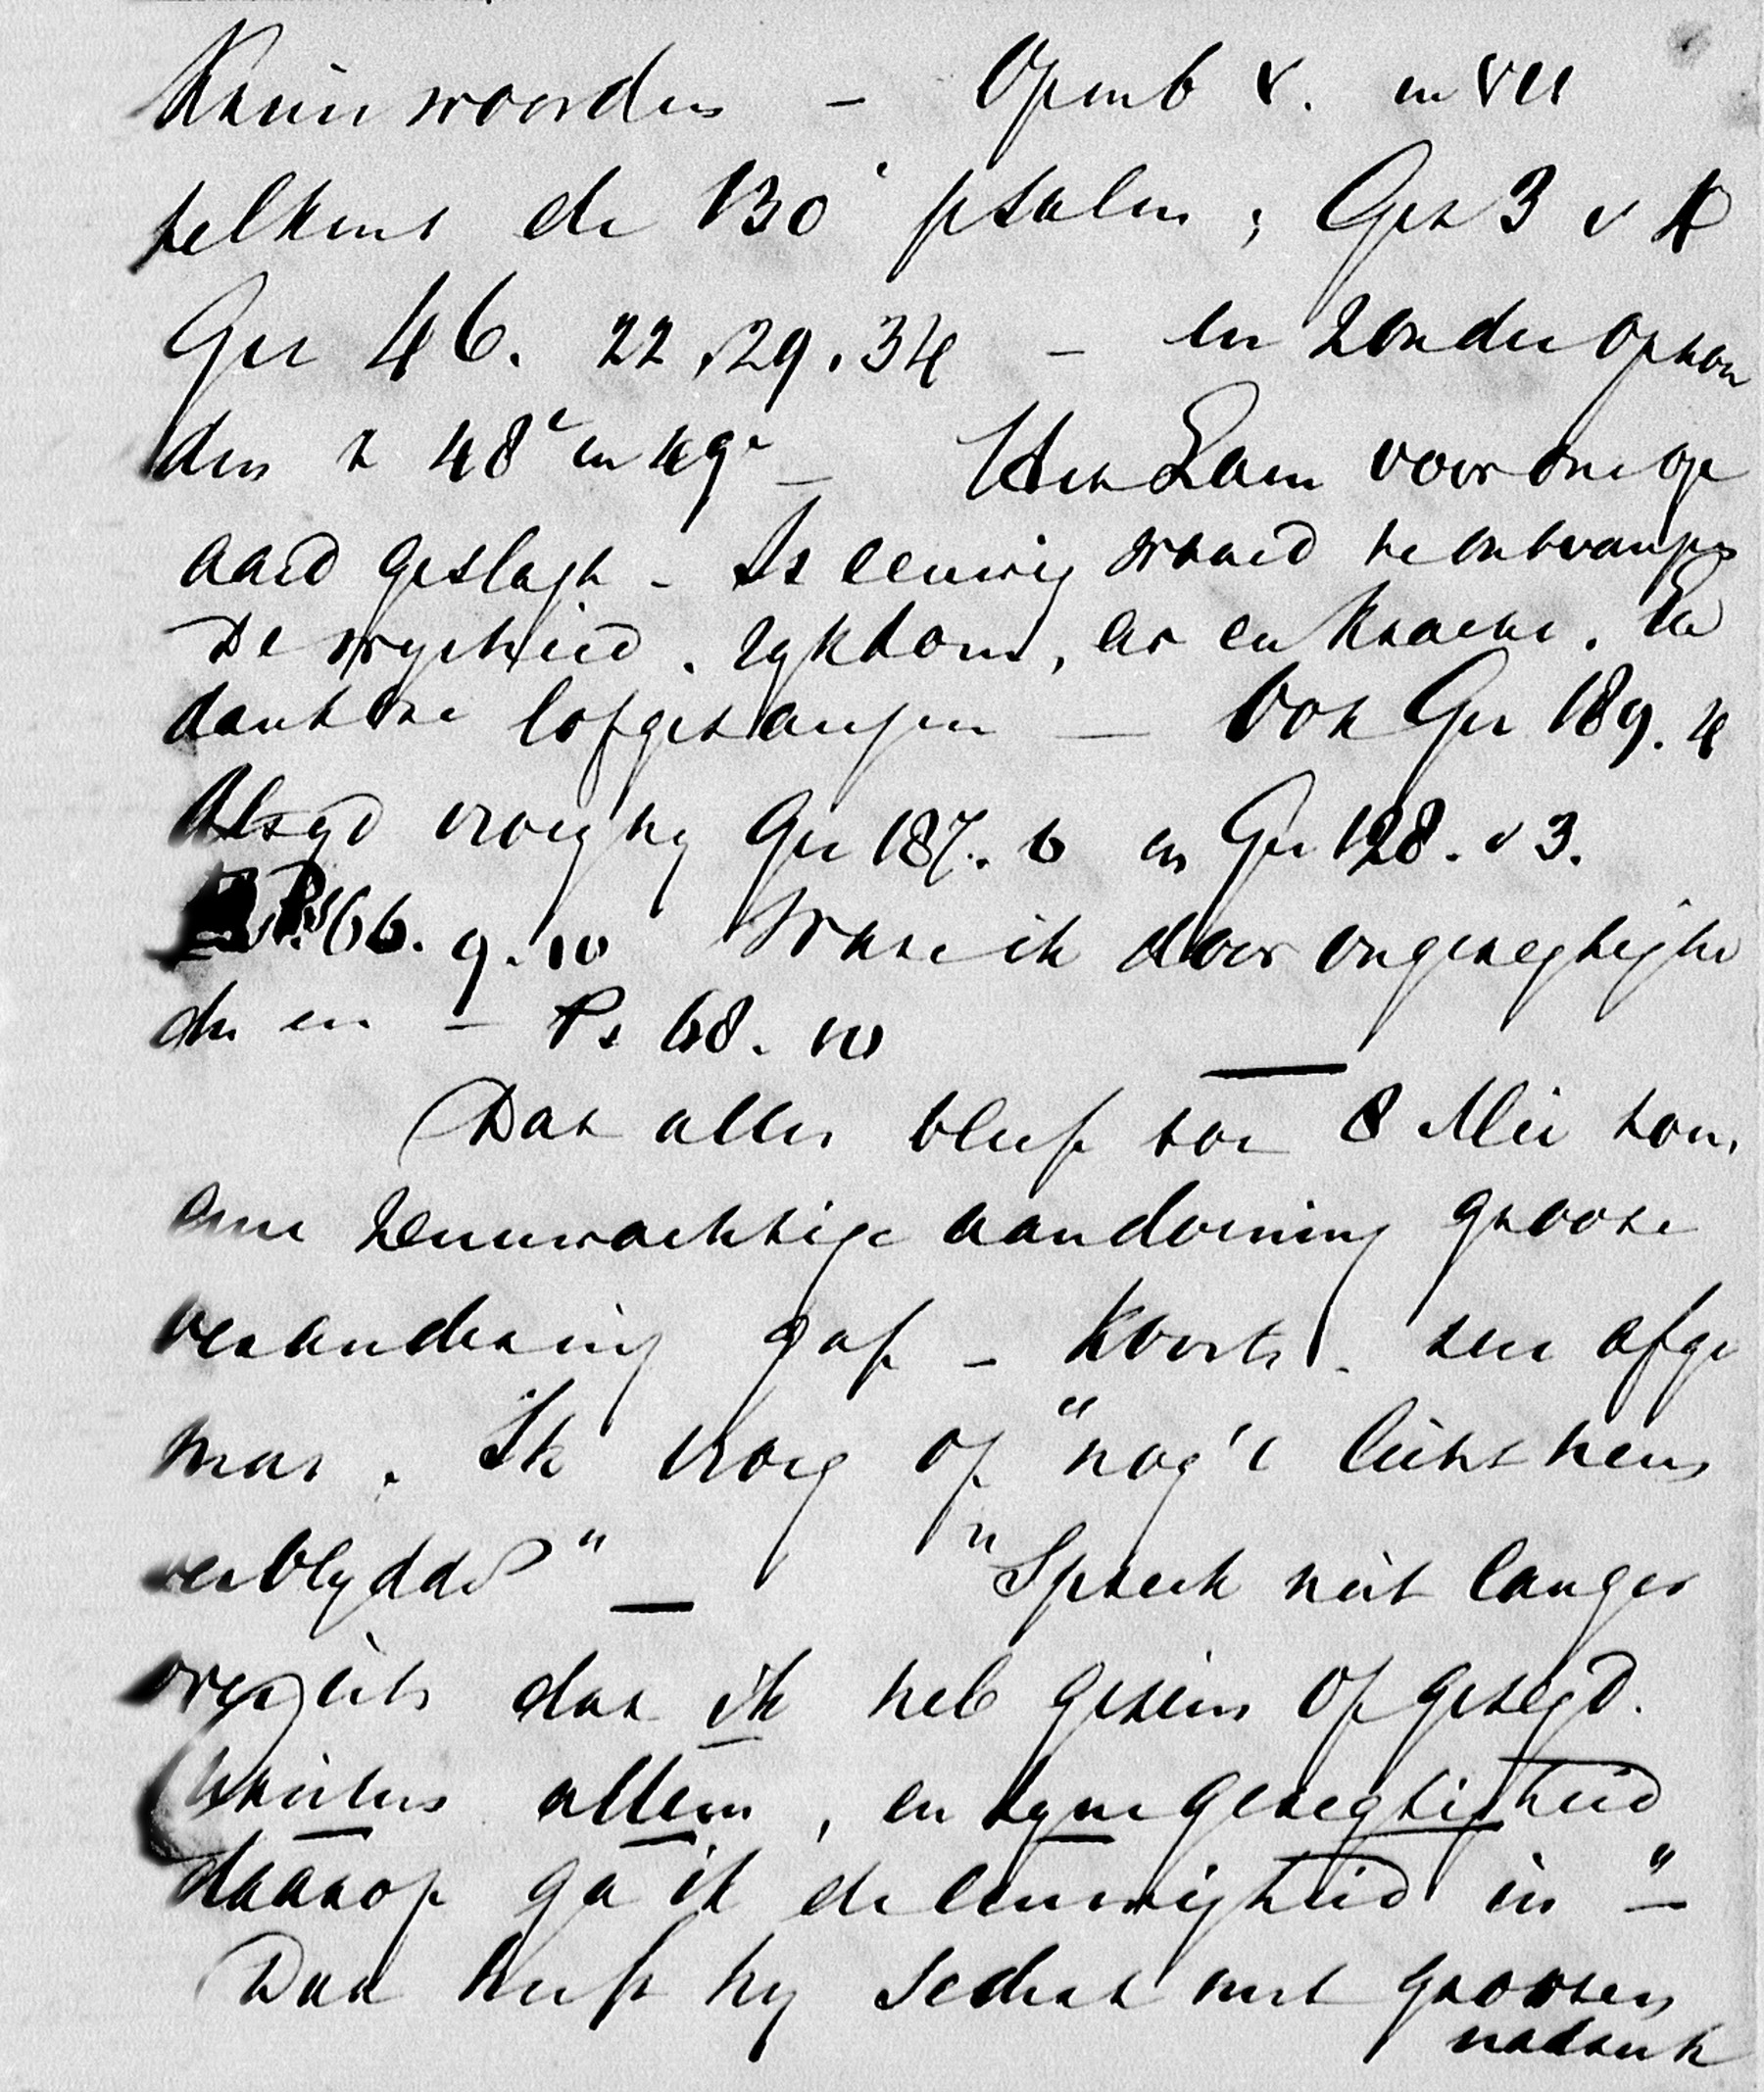 Kruiswoorden - Openb V. en VII
telkens de 130e psalm; Gez 3 v 4
Gez 46. 22, 29, 34 - en zonder ophou
den t 48e en 49e - Het Lam voor ons op
aard geslagt - Is eeuwig waard te ontvangen
De wysheid. rykdom, eer en kracht. En
dankbre lofgezangen - Ook Gez 189. 4
Altyd vroeg hy Gez 187. 6 en Gez 128. v 3.
Ps 66. 9. 10 ik door ongeregtighe
den en - Ps 68. 10
Dat alles bleef tot 8 Mei toen
eene zenuwachtige aandoening groote
verandering gaf - koorts - zeer afge
mat. Ik vroeg of "nog 't licht hem
verblydde" - "Spreek niet langer
over iets dat ik heb gezien of gezegd.
Christus alleen, en zyne geregtigheid
daarop ga ik de eeuwigheid in" -
Dat heeft hy sedert met grooten
nadruk